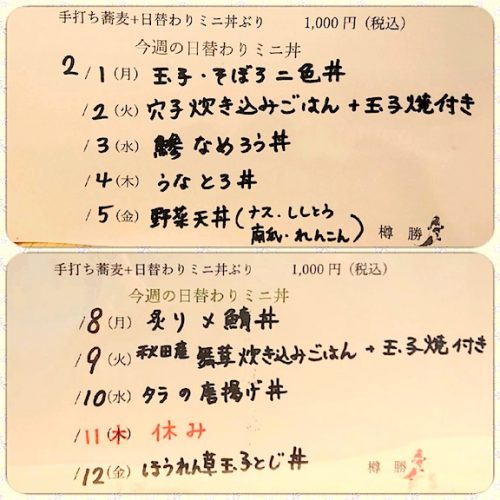 手打ち蕎麦+日替わりミニ丼ぶり 1,000円(税込)
今週の日替わりミニ丼
2/1(月) 玉子・そぼろ二色丼
/2(火) 穴子炊き込みごはん+玉子焼付き
/3(水) 鯵なめろう丼
/4(木) うなとろ丼
/5(金) 野菜天丼(ナス.ししとう
南瓜・れんこん)
樽勝
手打ち蕎麦+日替わりミニ丼ぶり 1,000円(税込)
今週の日替わりミニ丼
/8(月) 炙り〆鯖丼
/9(火) 秋田産 舞茸炊き込みごはん+玉子焼付き
/10(水) タラの唐揚げ丼
/11(木) 休み
/12(金) ほうれん草玉子とじ丼
樽勝